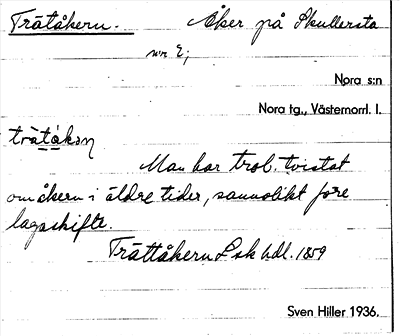 Trätåkern. Åker på Skullersta
nr 2;
Nora s:n
Nora tg., Västernorrl. l.
trä̀tåkən
Man har trol. tvistat
om åkern i äldre tider, sannolikt före
lagaskifte.
Trättåkern Lsk hdl. 1859
Sven Hiller 1936.